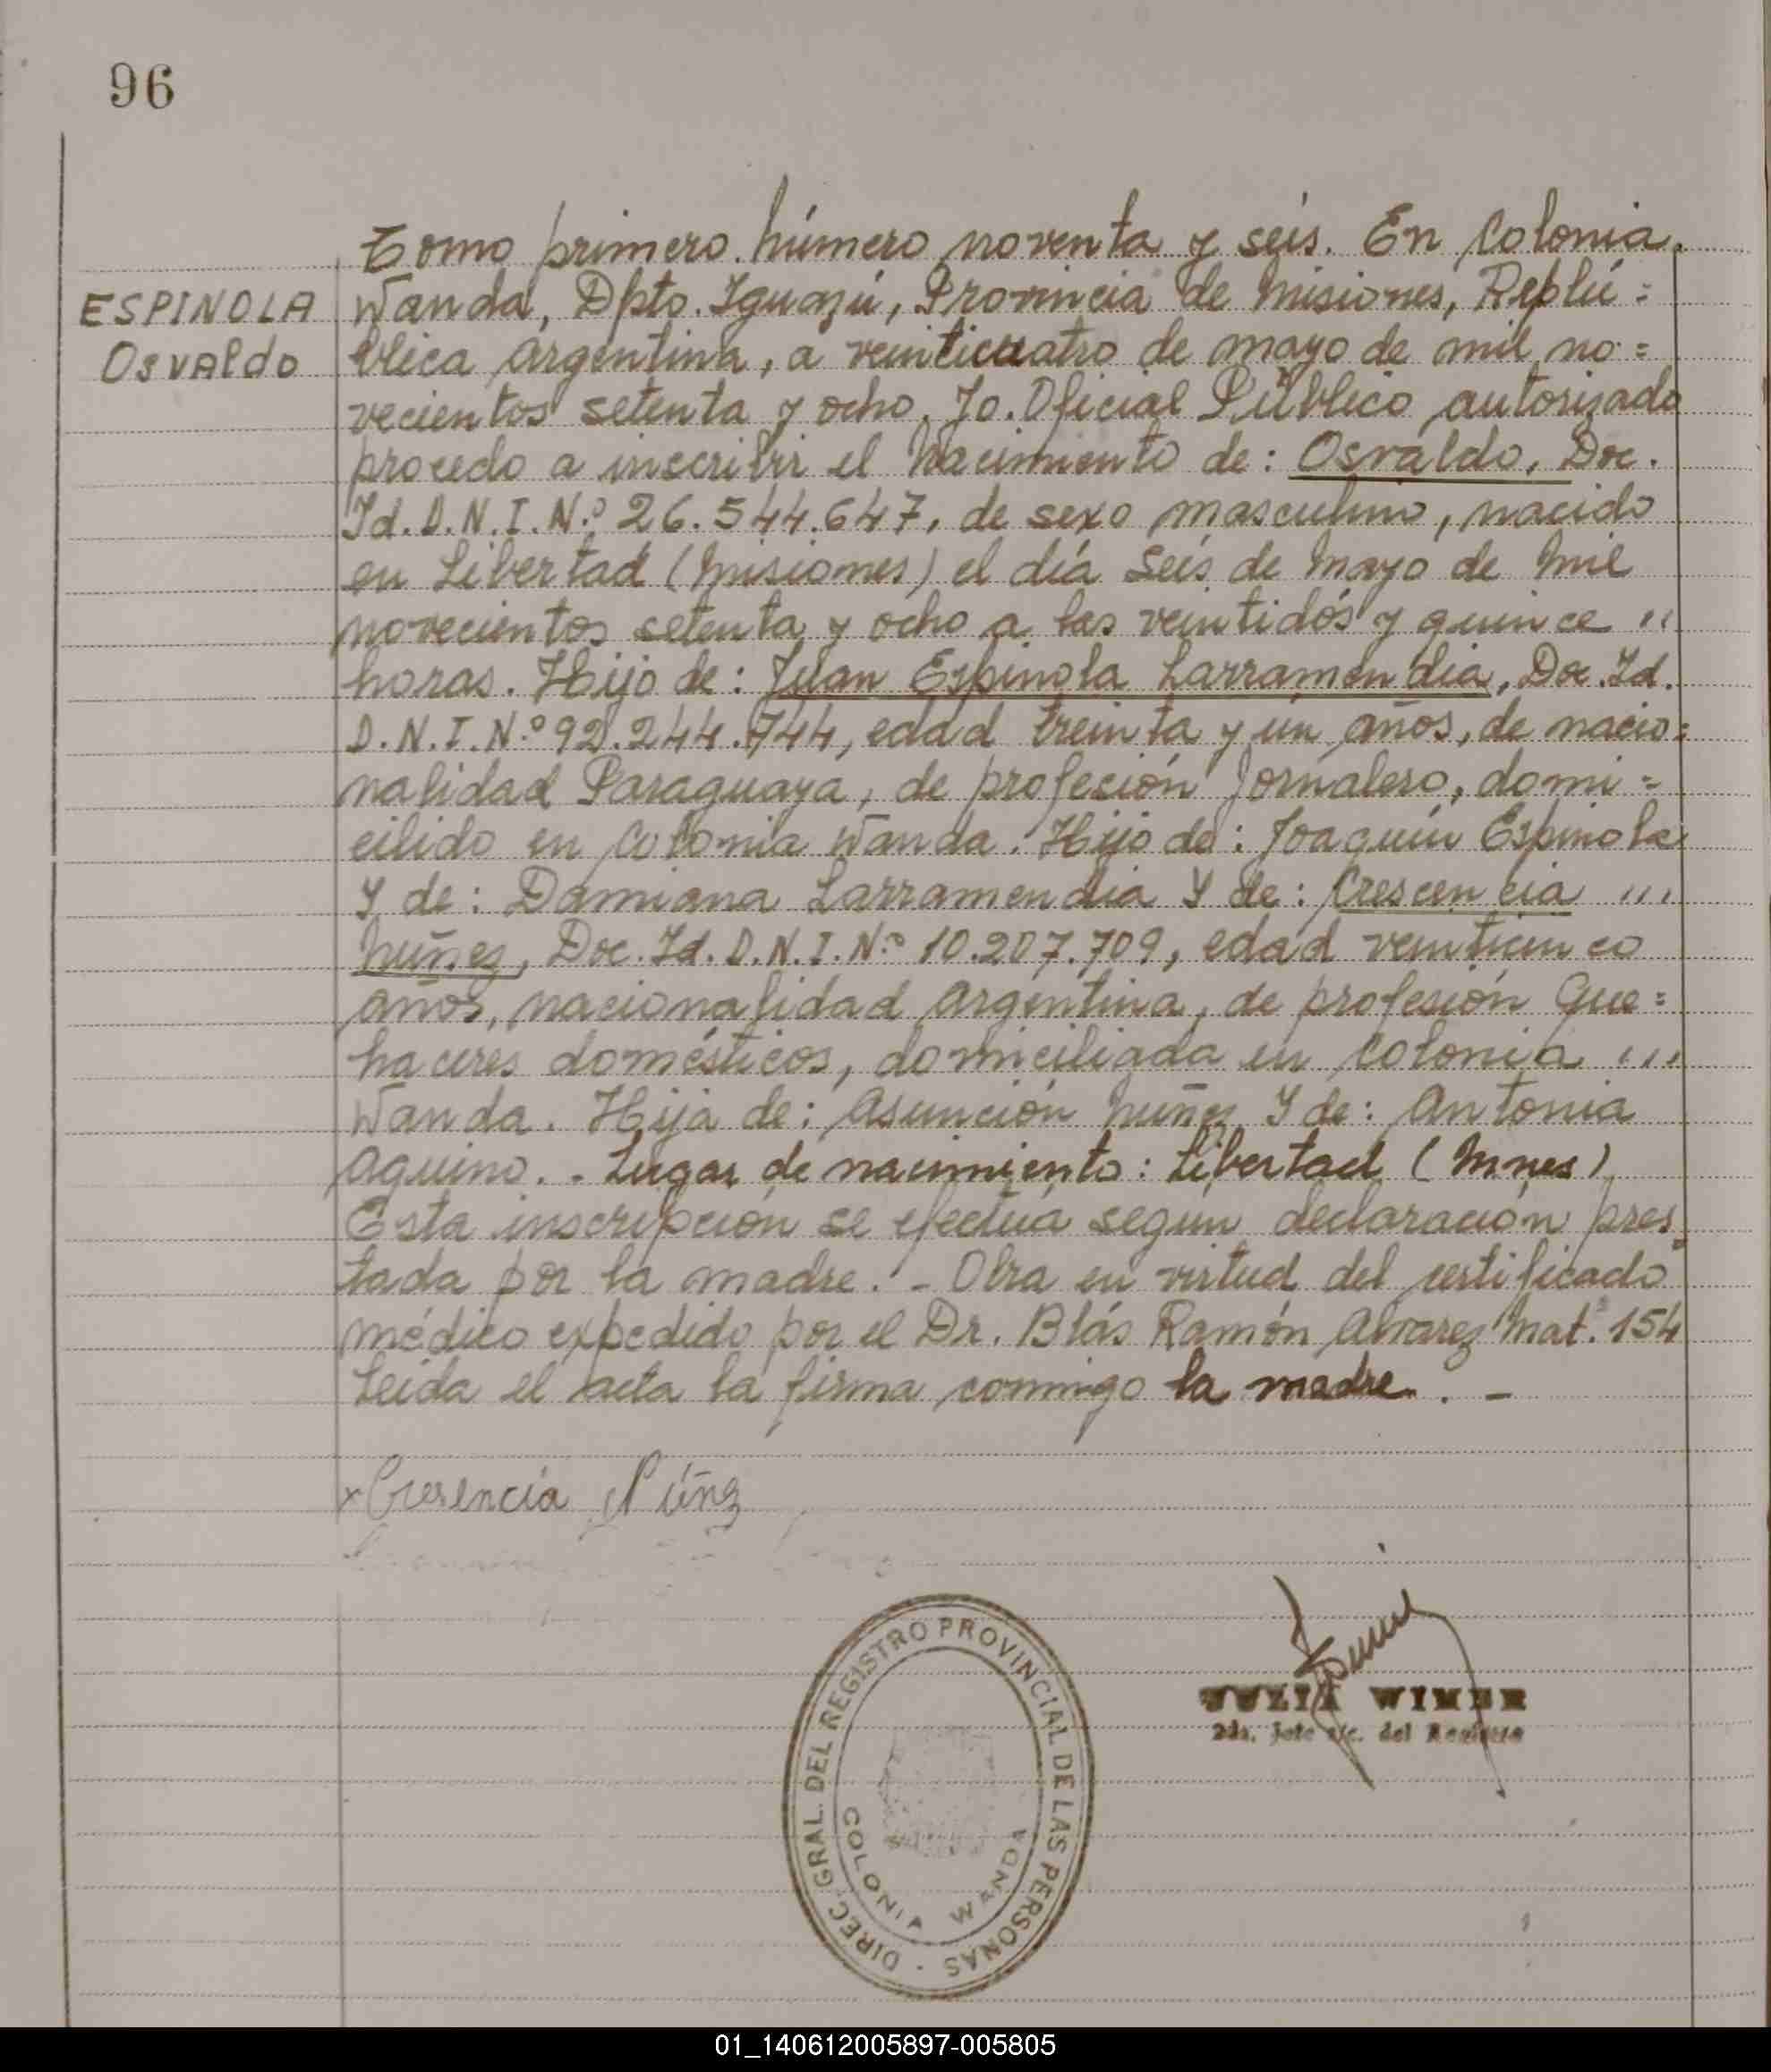 96
ESPINOLA
Osvaldo
Tomo primero. Número noventa y seis. En Colonia
Wanda, Dpto. Iguazú, Provincia de Misiones, Replú=
blica Argentina, a veinticuatro de mayo de mil no=
vecientos setenta y ocho. Yo. Oficial Público autorizado
procedo a inscribir el Nacimiento de: Osvaldo, Doc.
Id. D.N.I. Nº 26.544.647, de sexo masculino, nacido
en Libertad (Misiones) el día Seis de Mayo de Mil
novecientos setenta y ocho a las veintidós y quince "
horas. Hijo de: Juan Espinola Larramendia, Doc. Id.
D.N.I. Nº 92.244.744, edad treinta y un años, de nacio=
nalidad Paraguaya, de profeción Jornalero, domi=
cilido en Colonia Wanda. Hijo de: Joaquín Espinola
Y de: Damiana Larramendia Y de: Crescencia "'
Nuñez, Doc. Id. D.N.I. Nº 10.207.709, edad veinticinco
años, nacionalidad Argentina, de profesión Que=
haceres domésticos, domiciliada en Colonia "'
Wanda. Hija de: Asunción Nuñez Y de: Antonia
Aquino. - Lugar de nacimiento: Libertad (Mnes)
Esta inscripción se efectúa según declaración pres=
tada por la madre. - Obra en virtud del certificado
médico expedido por el Dr. Blás Ramón Alvarez Mat. 154
Leida el acta la firma conmigo la madre. -
x Cresencia Núñz
DIREC. GRAL. DEL REGISTRO PROVINCIAL DE LAS PERSONAS
COLONIA WANDA
JULIA WIMER
2da. Jefe a/c. del Registro
01_140612005897-005805